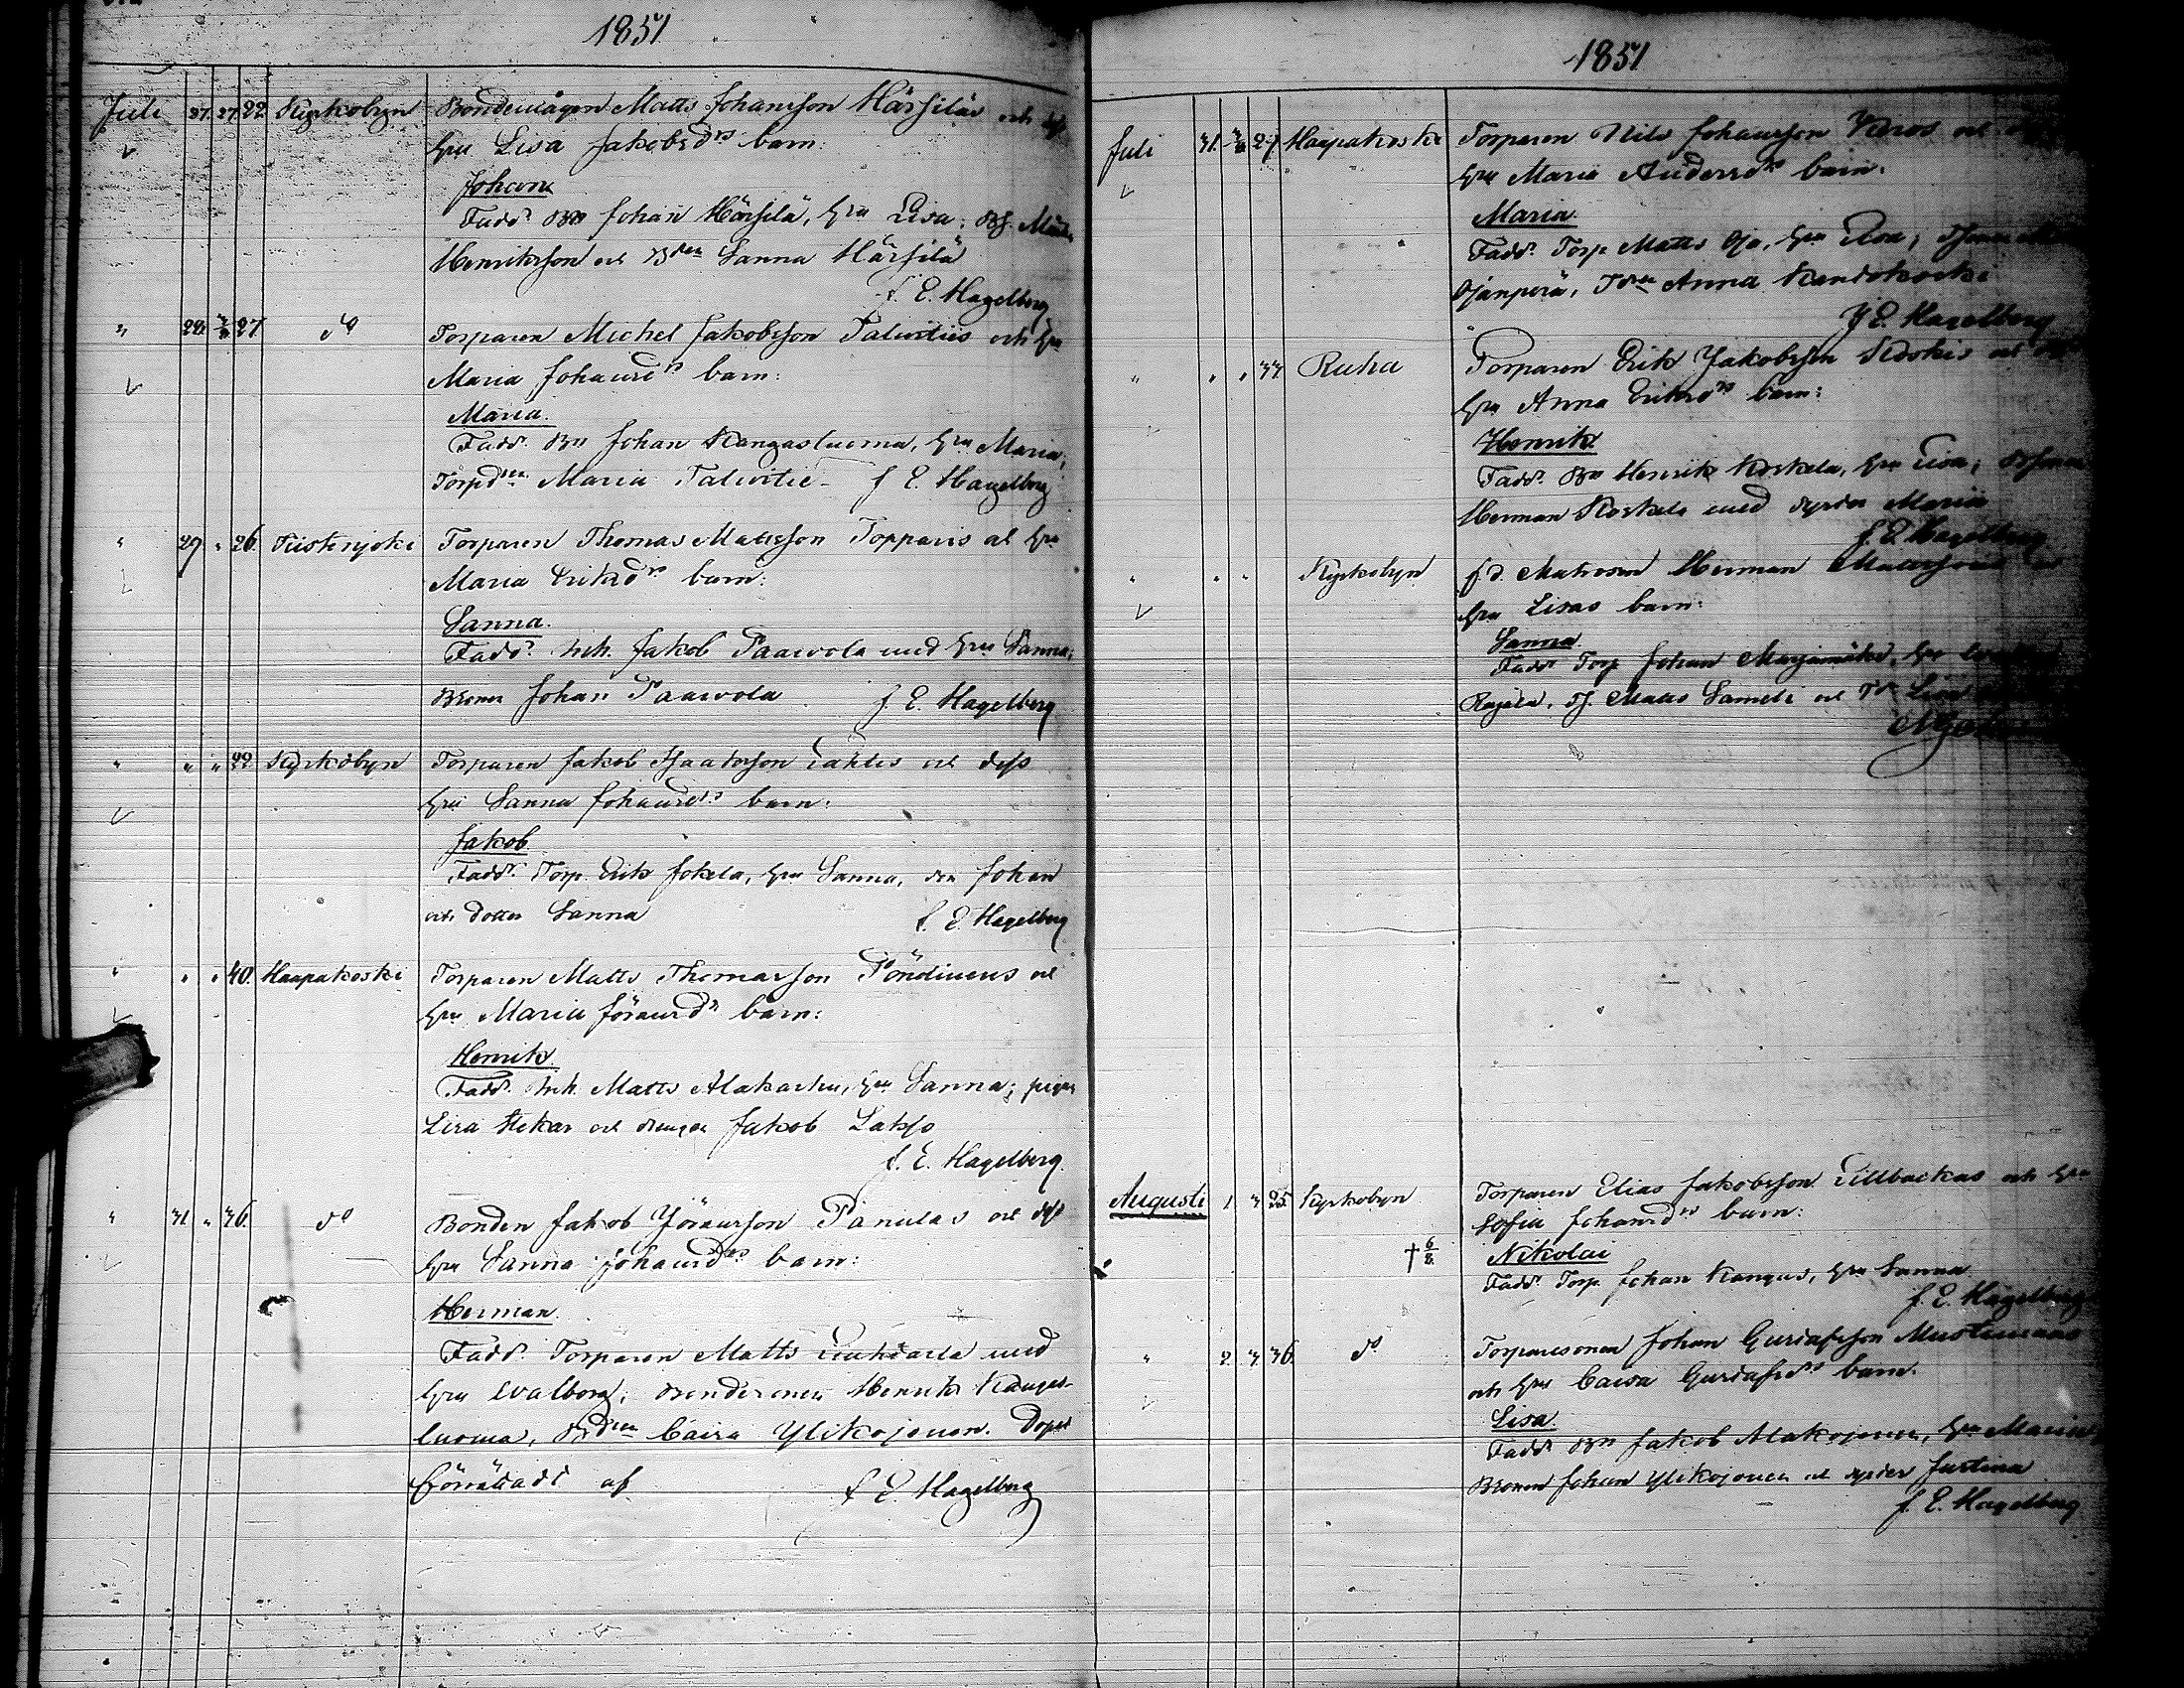 1851
Juli 27. 27 22. Kyrkobyn Bondemågen Matts Johansson Härsiläs och
hu Lisa Jakobsdrs barn:
Johan
Fadd. Bn Johan Härsilä, hu Lisa;
Henriksson och Bdrn Sanna Härsilä
J. E. Hagelberg
" 28. 27 do Torparen Michel Jakobsson Talvitiis och hu
Maria Johansdrs barn:
Maria.
Fadd. Bn Johan Kangasluoma, hu Maria;
Torpdrn Maria Talvitie - J E. Hagelberg
" 29 " 26. Tiistenjoki Torparen Thomas Mattsson Topparis och hu
Maria Eriksdrs barn:
Sanna.
Fadd. Inh. Jakob Paavola med hu Sanna;
Bsonen Johan Paavola J. E. Hagelberg
" " " 22. Kyrkobyn Torparen Jakob Isaaksson Lahtis och dess
hu Sanna Johansdrs barn:
Jakob
Fadd. Torp. Erik Jokela, hu Sanna, Johan
och dotter Sanna J. E. Hagelberg
" " " 40. Haapakoski Torparen Matts Thomasson Pöndinens och
hu Maria Göransdr barn:
Henrik.
Fadd. Inh. Matts Alakarhu, hu Sanna; pigan
Lisa och drängen Jakob Lakso
J. E. Hagelberg.
" 31 " 36. do Bonden Jakob Göransson Panulas och dess
hu Sanna Johansdrs barn:
Herman.
Fadd. Torparen Matts med
hu Walborg; Bondesonen Henrik Kangas-
luoma, Bdrn Caisa Ylikojonen. Dopet
förrättadt af J E. Hagelberg
1851
Juli 31. 29 Haapakoski Torparen Nils Johansson Karos och
hu Maria Andersdrs barn.
Maria.
Fadd. Torp. Matts Oja, hu Lisa;
Ojanperä, Tdrn Anna
J E. Hagelberg
" " " 33 Ruha Torparen Erik Jakobsson och
hu Anna Eriksdrs barn:
Henrik.
Fadd. Bn Henrik Koskela, hu Lisa;
Herman Koskela med syster Maria
J. E. Hagelberg
" " " Kyrkobyn f.d. Matrosen Herman
hu Lisas barn:
Sanna.
Fadd. Torp. Johan Marjamäki, hu
Rajala, Matts Sameli och Lisa
Augusti 1 3 25. Kyrkobyn Torparen Elias Jakobsson Tillbackas och hu
Sofia Johansdrs barn:
† 6/8 Nikolai
Fadd. Torp. Johan Kangas, hu Sanna.
J. E. Hagelberg
" 2. 3. 36. do Torparesonen Johan Gustafsson
och hu Caisa Gustafsdrs barn.
Lisa.
Fadd. Bn Jakob Alakojonen, hu Maria
Bsonen Johan Ylikojonen och syster Justina
J. E. Hagelberg